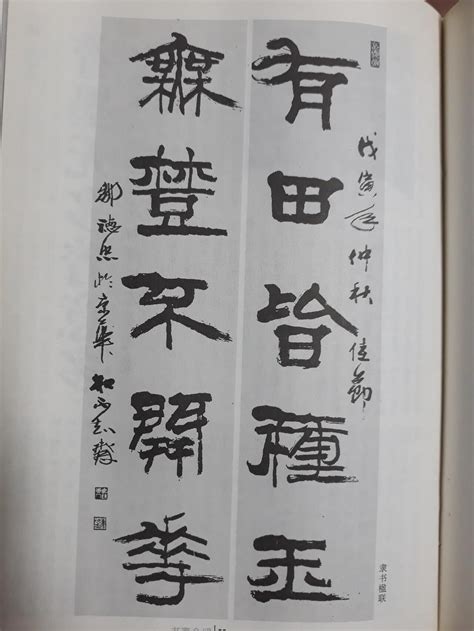 有田皆種玉
戊寅年仲秋佳節
無不開花
鄒德忠於京華知不齋
隶书楹联